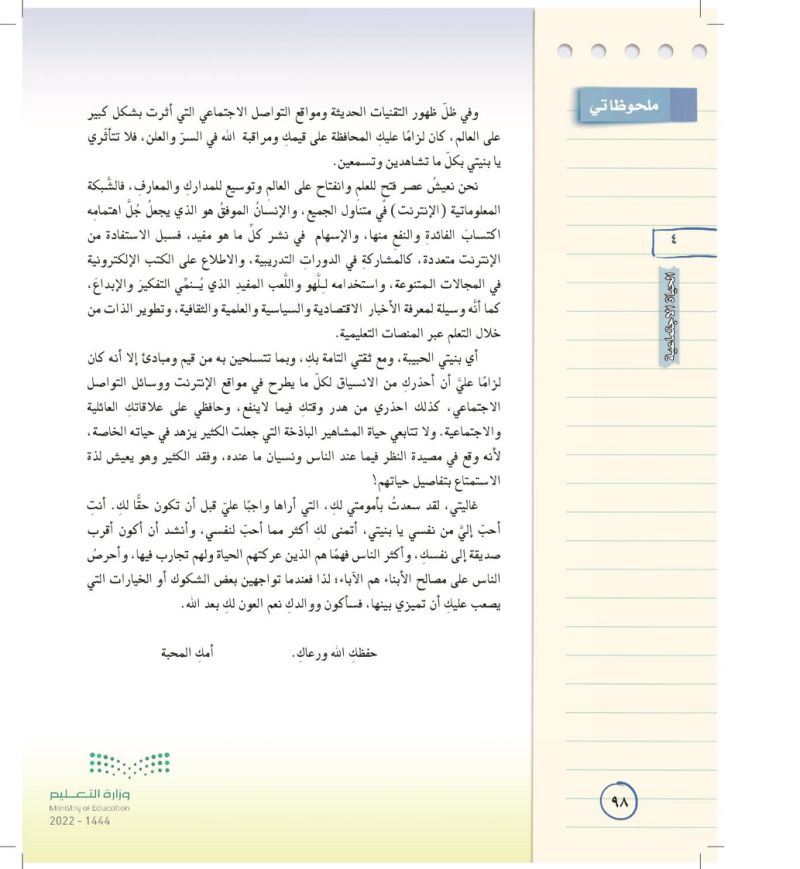 ملحوظاتي
٤
الحياة الاجتماعية
وفي ظلّ ظهور التقنيات الحديثة ومواقع التواصل الاجتماعي التي أثرت بشكل كبير
على العالم، كان لزامًا عليكِ المحافظة على قيمكِ ومراقبة الله في السرّ والعلن، فلا تتأثّري
يا بنيتي بكلّ ما تشاهدين وتسمعين.
نحن نعيشُ عصر فتحٍ للعلمِ وانفتاح على العالمِ وتوسيع للمداركِ والمعارفِ، فالشَّبكة
المعلوماتية (الإنترنت) في متناول الجميع، والإنسانُ الموفقُ هو الذي يجعلُ جُلَّ اهتمامِه
اكتسابَ الفائدةِ والنفعِ منها، والإسهام في نشر كلِّ ما هو مفيد، فسبل الاستفادة من
الإنترنت متعددة، كالمشاركةِ في الدوراتِ التدريبية، والاطلاع على الكتب الإلكترونية
في المجالات المتنوعة، واستخدامه للَّهو واللَّعب المفيد الذي يُنمِّي التفكيرَ والإبداعَ،
كما أنَّه وسيلة لمعرفة الأخبار الاقتصادية والسياسية والعلمية والثقافية، وتطوير الذات من
خلال التعلم عبر المنصات التعليمية.
أي بنيتي الحبيبة، ومع ثقتي التامة بكِ، وبما تتسلحين به من قيم ومبادئ إلا أنه كان
لزامًا عليَّ أن أحذركِ من الانسياق لكلّ ما يطرح في مواقع الإنترنت ووسائل التواصل
الاجتماعي، كذلك احذري من هدر وقتكِ فيما لاينفع، وحافظي على علاقاتكِ العائلية
والاجتماعية. ولا تتابعي حياة المشاهير الباذخة التي جعلت الكثير يزهد في حياته الخاصة،
لأنه وقع في مصيدة النظر فيما عند الناس ونسيان ما عنده، وفقد الكثير وهو يعيش لذة
الاستمتاع بتفاصيل حياتهم!
غاليتي، لقد سعدتُ بأمومتي لكِ، التي أراها واجبًا عليّ قبل أن تكون حقًّا لكِ. أنتِ
أحبّ إليَّ من نفسي يا بنيتي، أتمنى لكِ أكثر مما أحبّ لنفسي، وأنشد أن أكون أقرب
صديقة إلى نفسكِ، وأكثر الناس فهمًا هم الذين عركتهم الحياة ولهم تجارب فيها، وأحرصُ
الناس على مصالح الأبناء هم الآباء؛ لذا فعندما تواجهين بعض الشكوك أو الخيارات التي
يصعب عليكِ أن تميزي بينها، فسأكون ووالدكِ نعم العون لكِ بعد الله.
حفظكِ الله ورعاكِ. أمكِ المحبة
وزارة التعليم
Ministry of Education
2022 - 1444
٩٨